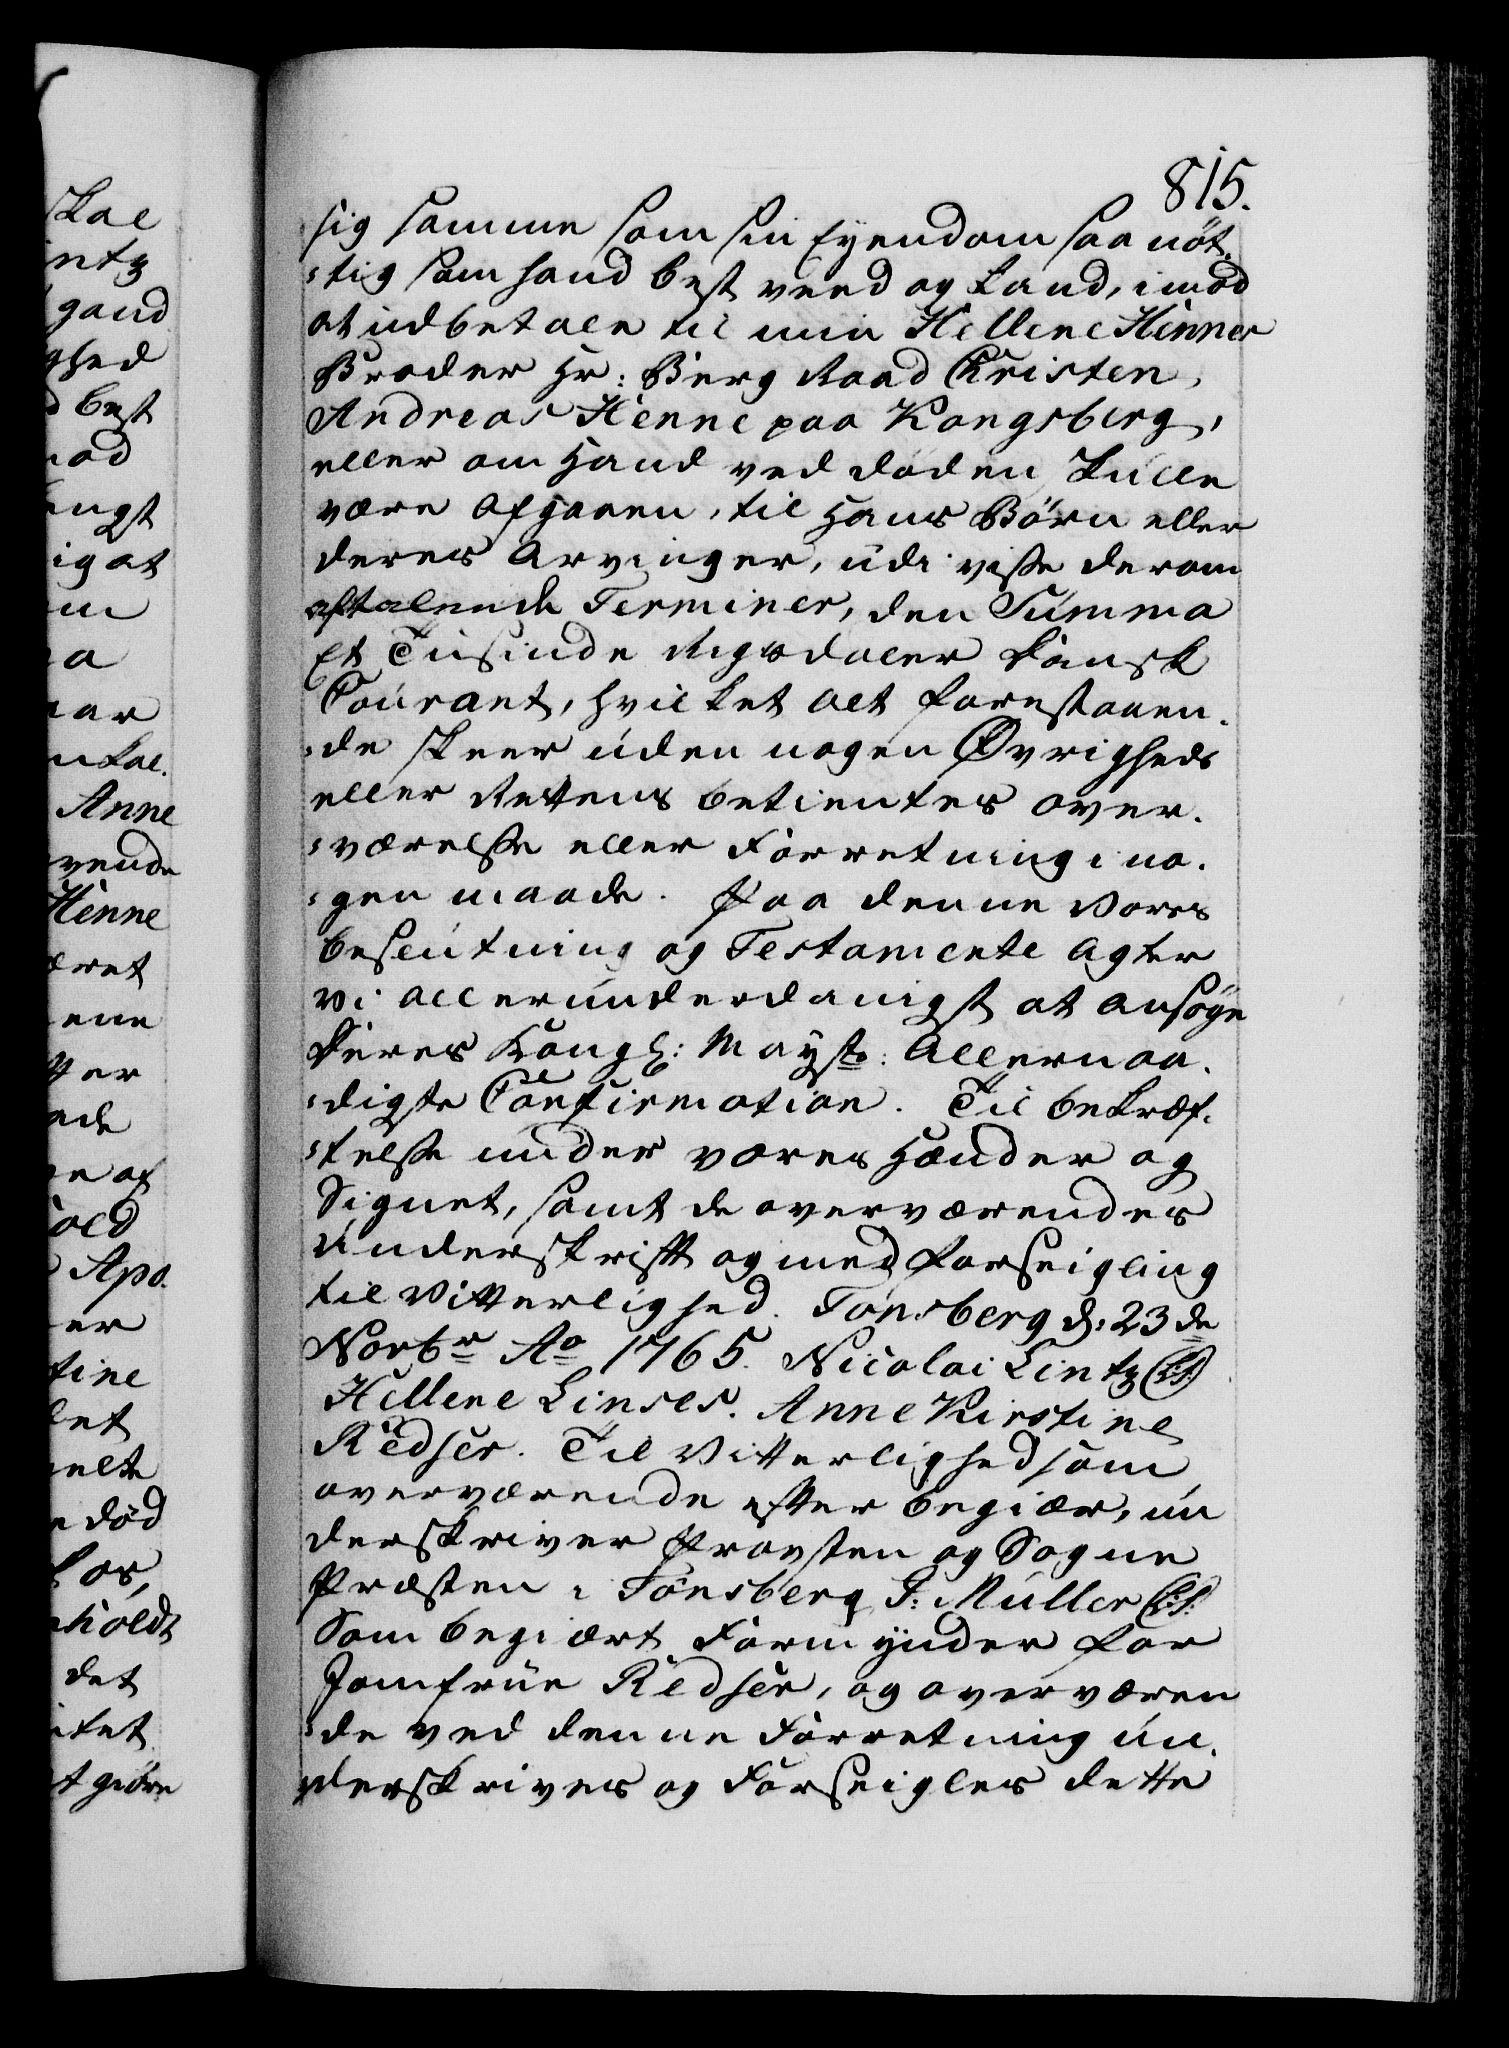 815.
sig samme som sin Eyendom saa nöt,
:tig som hand best veed og kand, imod
at udbetale til min Hellene Hinnes
Broder Hr: Berg Raad Christen
Andreas Henne paa Kongsberg,
eller om Hand ved döden skulle
være afgaaen, til Hans Börn eller
deres Arvinger, udi visse derom
aftalende Terminer, den Summa
Et Tusinde Rigsdaler Dansk
Courant, hvilket alt forestaaen,
:de skeer uden nogen Øvrigheds
eller Rettens betientes over,
:værelse eller Forretning i no,
:gen maade. Paa denne vores
beslutning og Testamente agter
vi allerunderdanigst at ansöge
Deres Kongl: Mayst: Allernaa,
:digste Confirmation. Til bekræf,
:telse under vores Hænder og
Signet, samt de overværendes
Underskrift og med forseigling
til Vitterlighed. Tønsberg d: 23de
Novbr Ao 1765. Nicolai Lintz (L:S:)
Hellene Linses. Anne Kirstine
Redser. Til Vitterlighed som
overværende efter begiær, un
derskriver Provsten og Sogne
Præsten i Tønsberg J: Müller (L:S:
Som begiært Formynder for
Jomfrue Redser, og overværen
:de ved denne Forretning un,
:derskrives og Forseigles dette
skal
ntz
gand
ghed
d best
mod
ig at
a
Anne
vende
Hinne
æret
ene
ede
e af
Apo.
er
tine
let
e död
det
t giöre